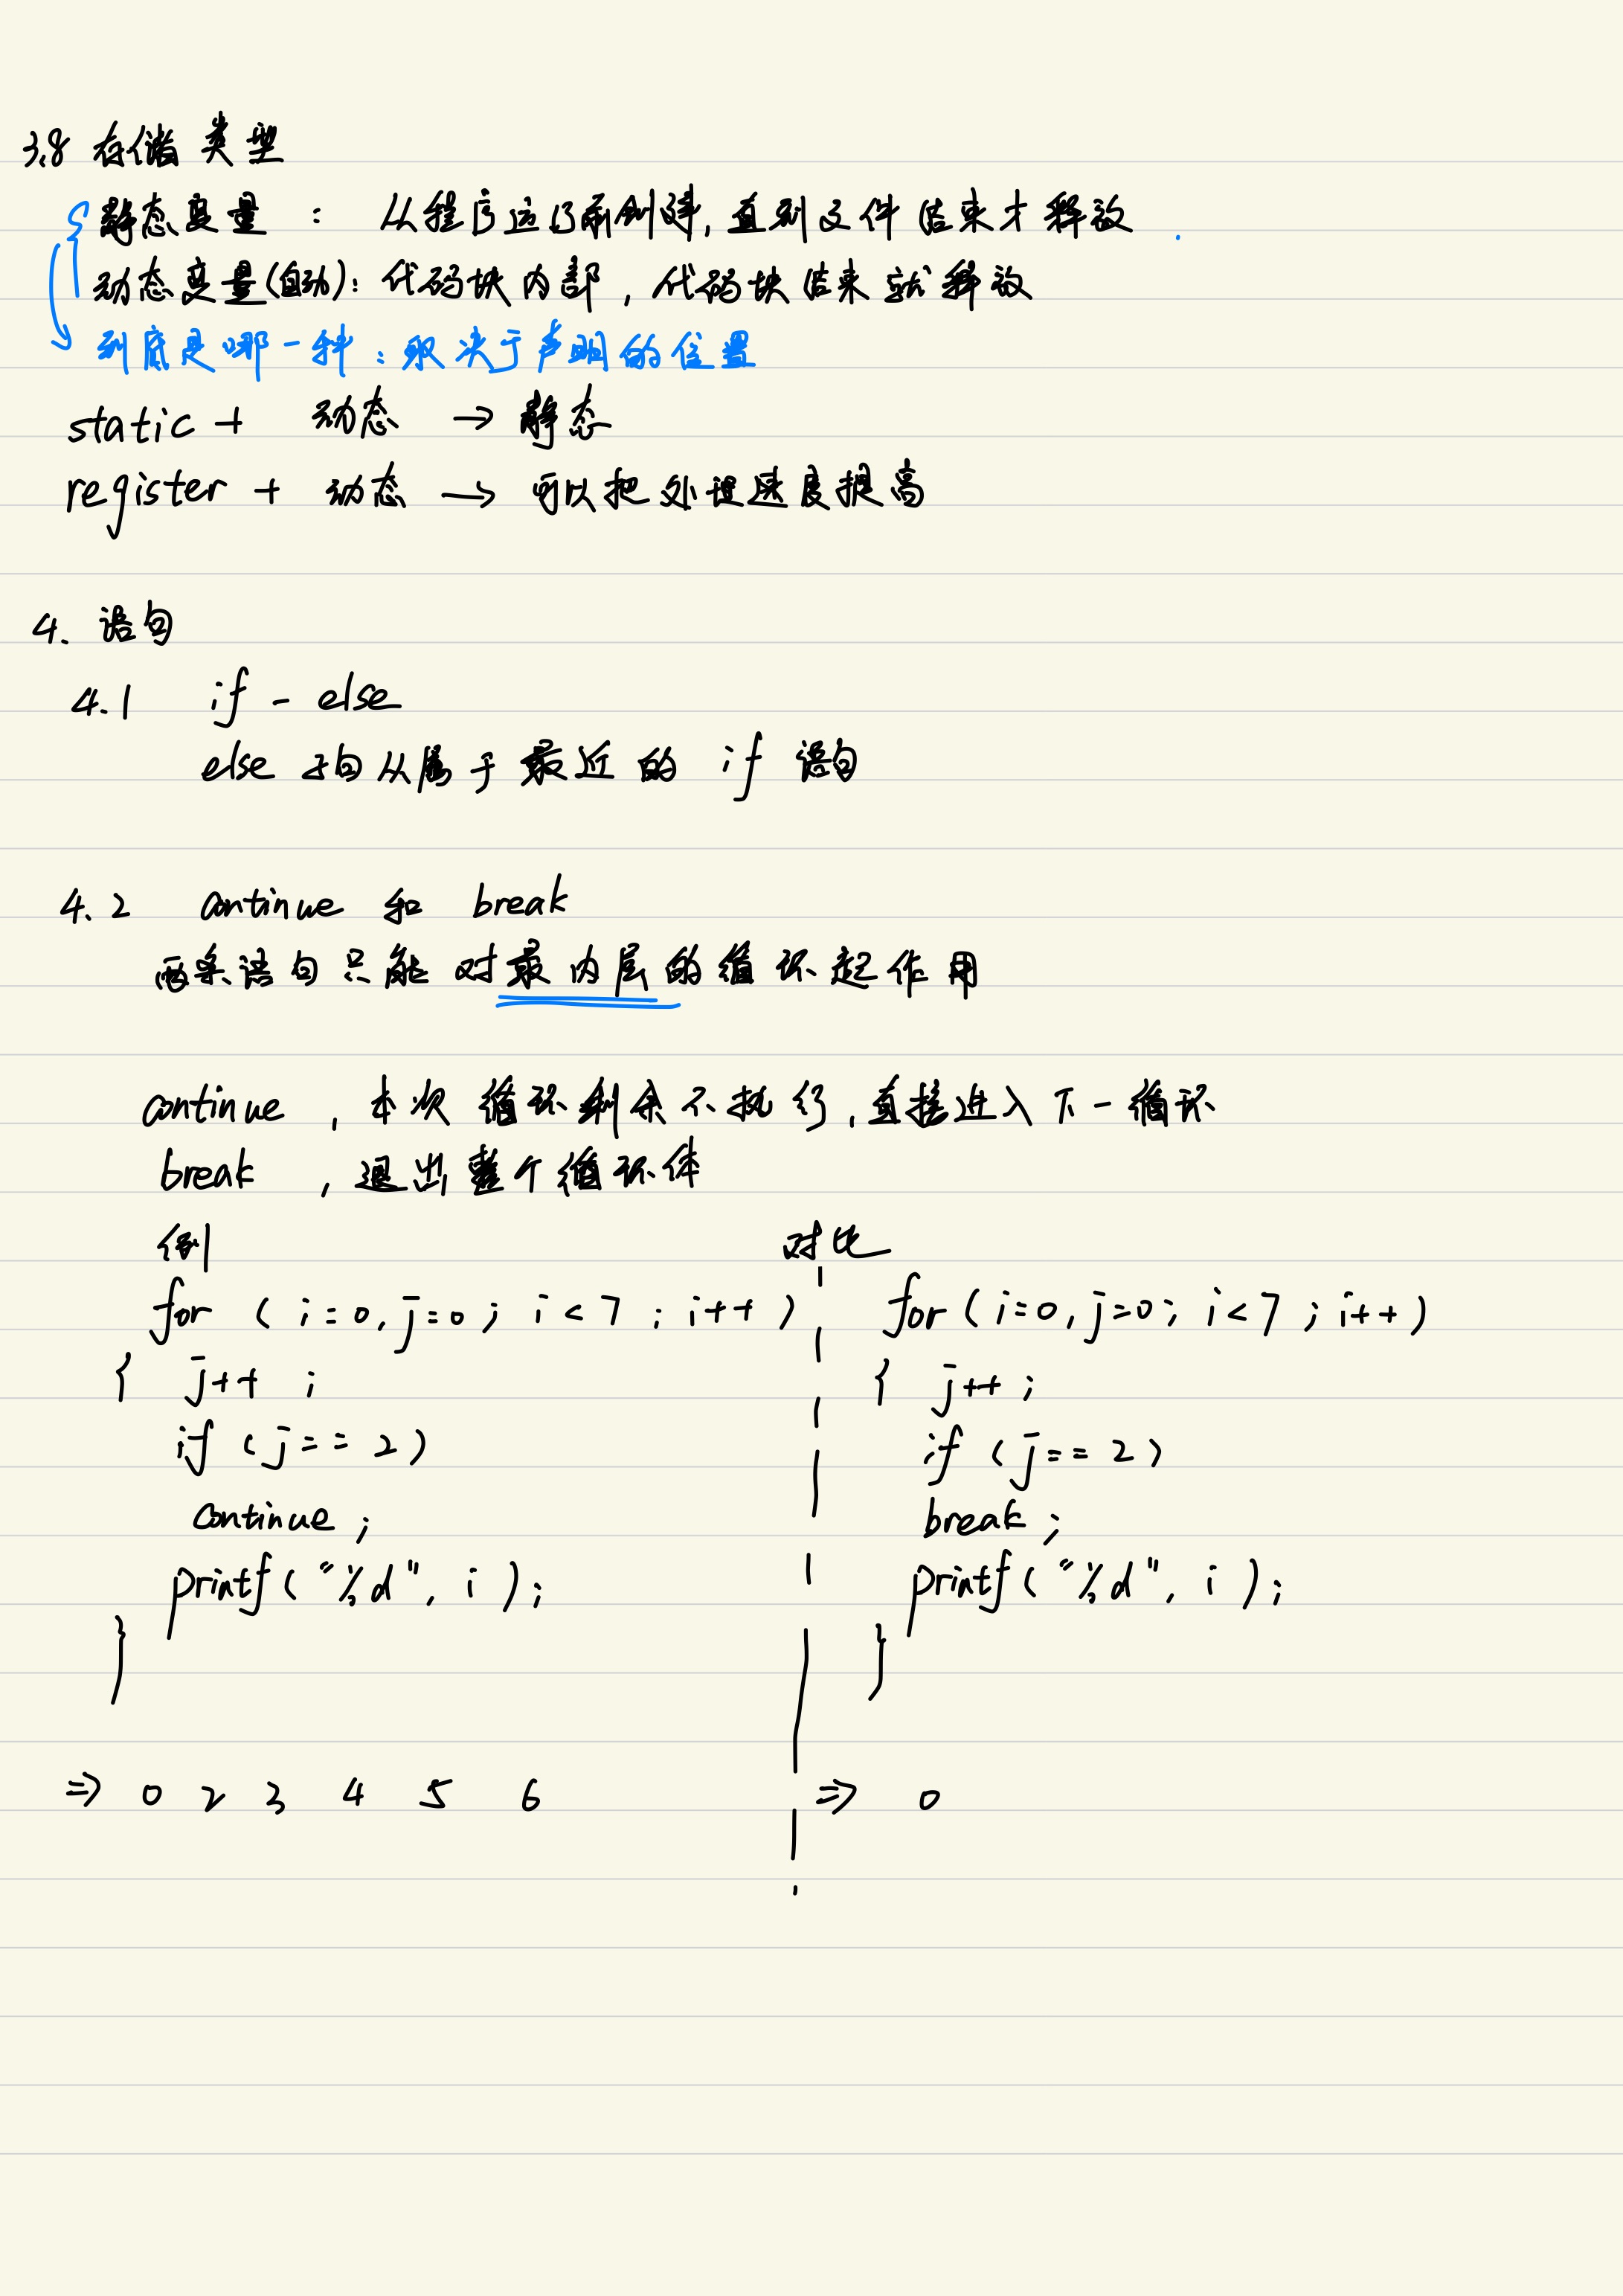 3.8 存储类型
静态变量 : 从程序运行前创建, 直到文件结束才释放
动态变量(自动): 代码块内部, 代码块结束就释放
到底是哪一种: 取决于声明的位置
static + 动态 → 静态
register + 动态 → 可以把处理速度提高
4. 语句
4.1 if - else
else 子句从属于最近的 if 语句
4.2 continue 和 break
两条语句只能对最内层的循环起作用
continue , 本次循环剩余不执行, 直接进入下一循环
break , 退出整个循环体
例
for ( i=0, j=0 ; i<7 ; i++ )
{ j++ ;
if ( j == 2 )
continue ;
printf ( "%d", i ) ;
}
⇒ 0 2 3 4 5 6
对比
for ( i=0, j=0 ; i<7 ; i++ )
{ j++ ;
if ( j == 2 )
break ;
printf ( "%d", i ) ;
}
⇒ 0